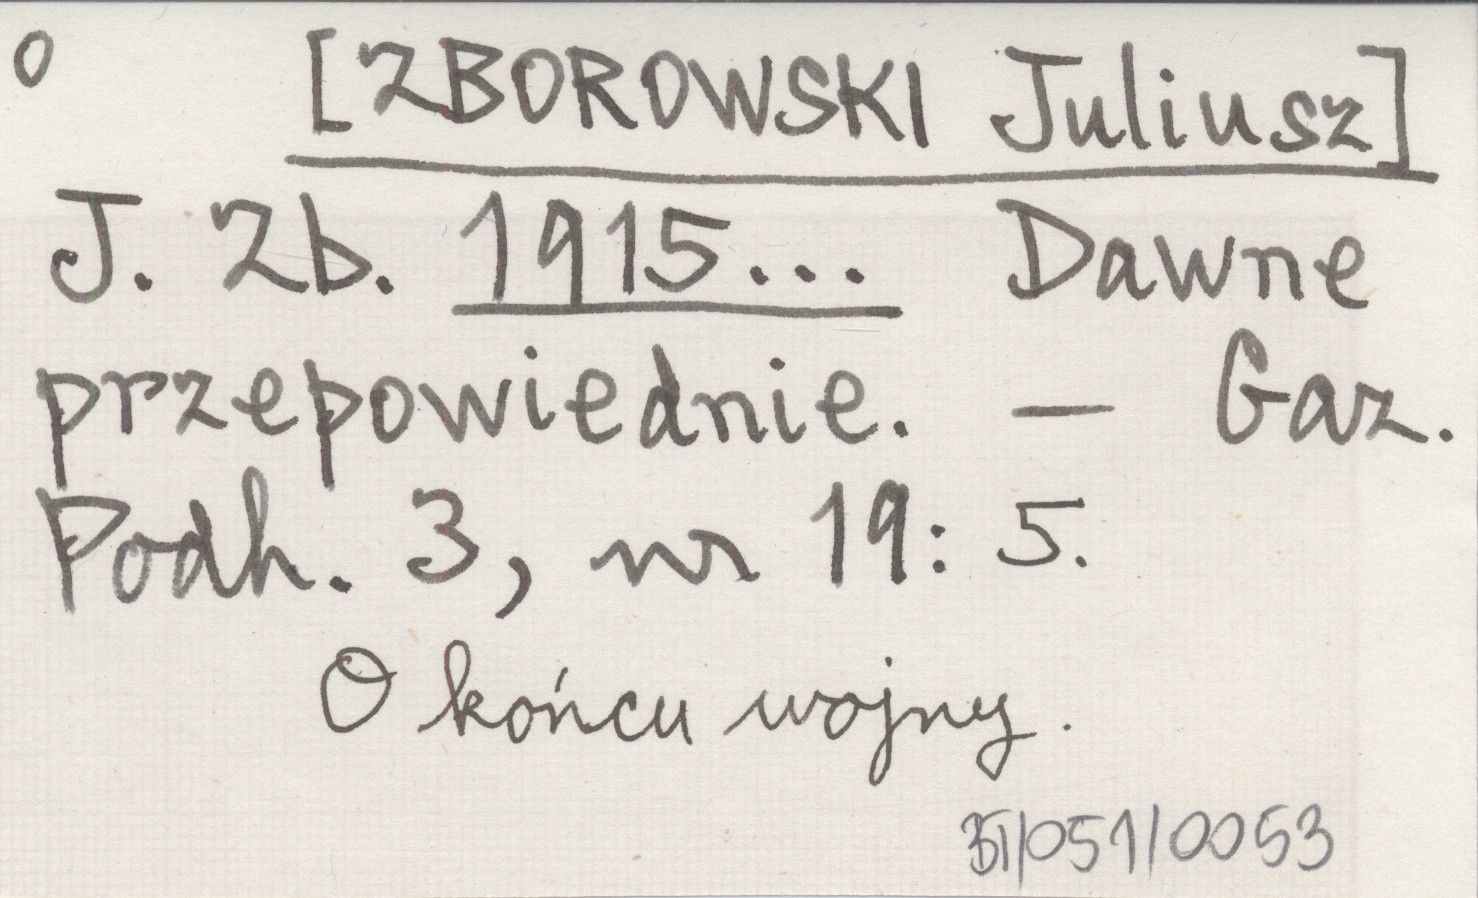 o [ZBOROWSKI Juliusz]
J. Zb. 1915... Dawne
przepowiednie. — Gaz.
Podh. 3, nr 19: 5.
O końcu wojny.
BT/051/0053